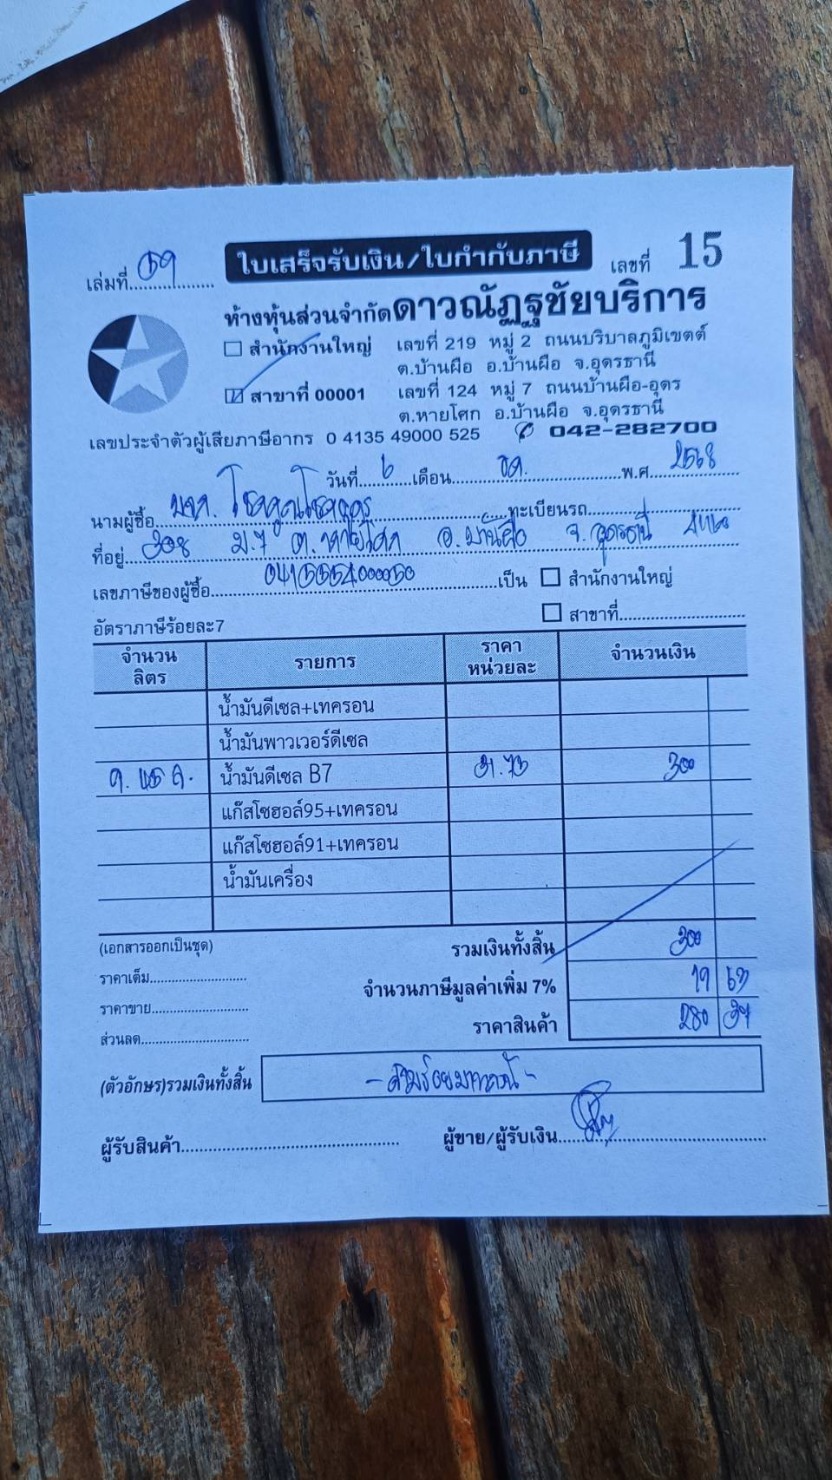 เล่มที่ 59 ใบเสร็จรับเงิน/ใบกำกับภาษี เลขที่ 15
ห้างหุ้นส่วนจำกัดดาวณัฏฐชัยบริการ
สำนักงานใหญ่ เลขที่ 219 หมู่ 2 ถนนบริบาลภูมิเขตต์
ต.บ้านผือ อ.บ้านผือ จ.อุดรธานี
สาขาที่ 00001 เลขที่ 124 หมู่ 7 ถนนบ้านผือ-อุดร
ต.หายโศก อ.บ้านผือ จ.อุดรธานี
เลขประจำตัวผู้เสียภาษีอากร 0 4135 49000 525 ✆ 042-282700
วันที่ 6 เดือน พ.ศ. 2568
นามผู้ซื้อ ทะเบียนรถ
ที่อยู่ 308 ม.7 ต.หายโศก อ.บ้านผือ จ.อุดรธานี
เลขภาษีของผู้ซื้อ เป็น สำนักงานใหญ่
สาขาที่
อัตราภาษีร้อยละ7
จำนวนลิตร รายการ ราคาหน่วยละ จำนวนเงิน
น้ำมันดีเซล+เทครอน
น้ำมันพาวเวอร์ดีเซล
น้ำมันดีเซล B7 31.73 300
แก๊สโซฮอล์95+เทครอน
แก๊สโซฮอล์91+เทครอน
น้ำมันเครื่อง
(เอกสารออกเป็นชุด) รวมเงินทั้งสิ้น 300
ราคาเต็ม จำนวนภาษีมูลค่าเพิ่ม 7% 19 63
ราคาขาย ราคาสินค้า 280 37
ส่วนลด
(ตัวอักษร)รวมเงินทั้งสิ้น -สามร้อยบาทถ้วน-
ผู้รับสินค้า ผู้ขาย/ผู้รับเงิน